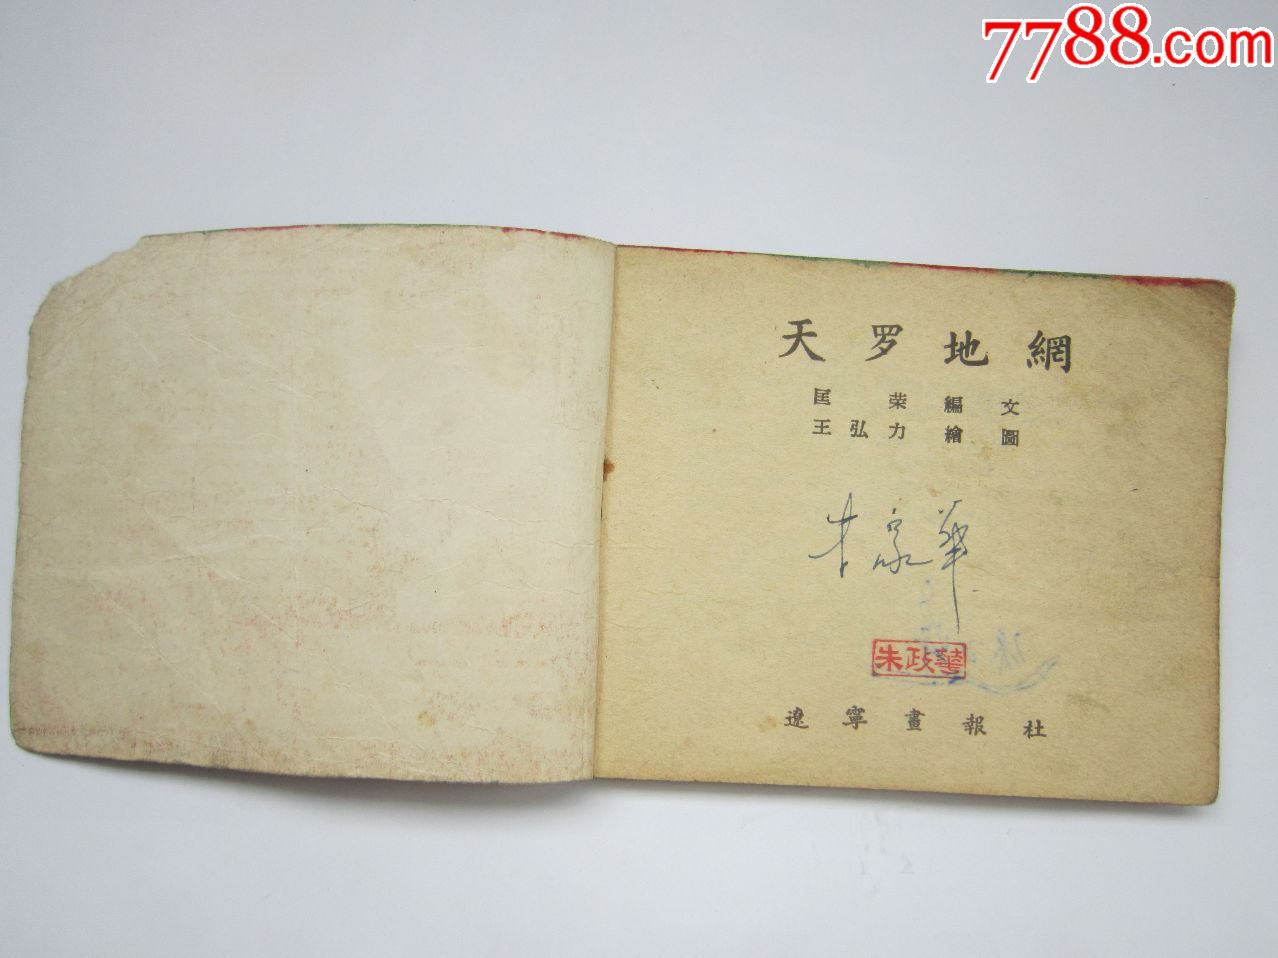 7788.com
天罗地網
匡荣編文
王弘力繪圖
朱政華
遼寧畫報社